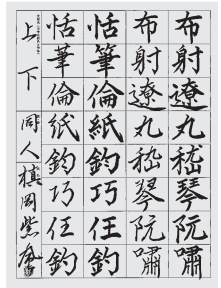 布射遼丸嵇琴阮嘯
布射遼丸嵇琴阮嘯
恬筆倫紙鈞巧任釣
恬筆倫紙鈞巧任釣
上下
同人 棋岡紫